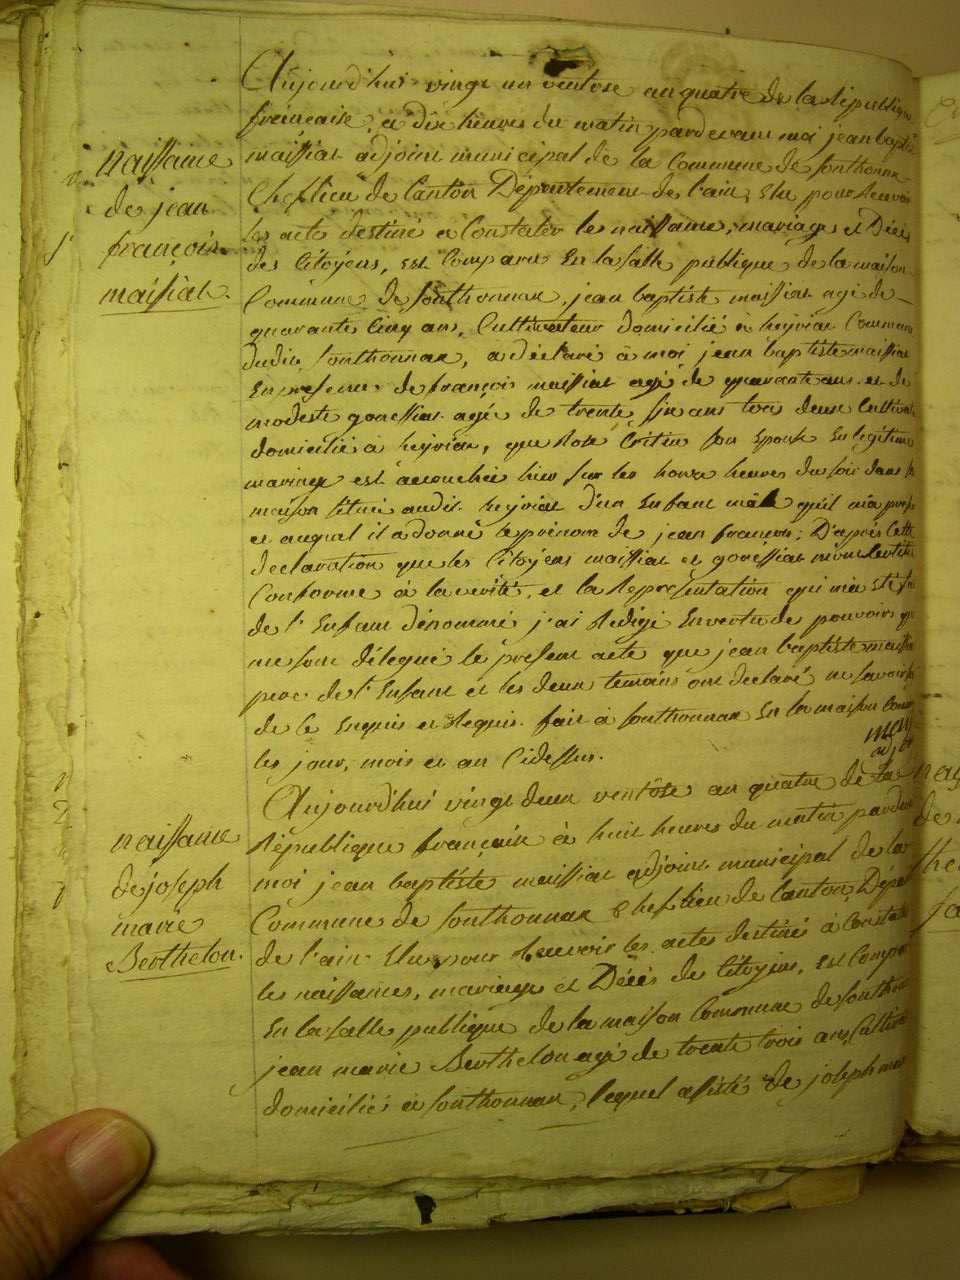 naissance
de jean
françois
maissiat.
Aujourd'hui vingt un ventose an quatre de la république
francaise, a dix heures du matin pardevant moi jean baptiste
maissiat adjoint municipal de la Commune de sonthonnax
Cheflieu de Canton Département de l'ain, Elu pour Recevoir
les actes destiné a Constater les naissances, mariages et Décès
des Citoyens, est Comparu En la salle publique de la maison
Commune de Sonthonnax, jean baptiste maissiat agé de
quarante Cinq ans, Cultivateur domicilié à heyriat Commune
dudit Sonthonnax, a déclaré à moi jean baptiste maissiat
En presence de françois maissiat agé de quarante ans et de
modeste goressiat agée de trente six ans tous deux Cultivat
domicilié à heyriat, que Rose Critin son Epouse En legitime
mariage est acouchée hier sur les honze heures du soir dans sa
maison située audit heyriat d'un Enfant mâle qu'il m'a presé
et auquel il a donné le prénom de jean françois; D'après Cette
declaration que les Citoyens maissiat et goressiat m'ont Certifié
Conforme à la vérité, et la Representation qui m'a été faite
de l'Enfant dénommé j'ai Rédigé En vertu de pouvoirs qui
me sont délegué le present acte que jean baptiste maissiat
pere de l'Enfant et les deux temoins ont declaré ne savoir signer
de le Enquis et Requis. fait à Sonthonnax En la maison Comm
les jour, mois et an Cidessus.
naissance
de joseph
marie
Berthelon.
Aujourd'hui vingt deux ventôse an quatre de la
République française à huit heures du matin pardevant
moi jean baptiste maissiat adjoint municipal de la
Commune de Sonthonnax Cheflieu de Canton, Dépar
de l'ain Elu pour Recevoir les actes destinés à Constater
les naissances, mariages et Décès des Citoyens, est Comparu
En la salle publique de la maison Commune de Sonthonnax
jean marie Berthelon agé de trente trois ans Cultivat
domicilié à Sonthonnax, lequel assisté de joseph marie